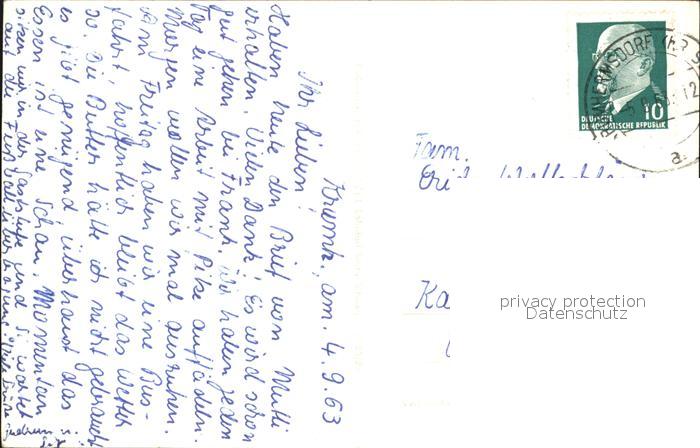 Krumh., am. 4.9.63
Ihr Lieben!
Haben heute den Brief von Mutti
erhalten. Vielen Dank! Es wird schon
gut gehen bei Frank. Wir haben jeden
Tag eine Arbeit mit Pike auffädeln.
Morgen wollen wir mal ausruhen.
Am Freitag haben wir eine Bus-
fahrt, hoffentlich bleibt das Wetter
so. Die Butter hätte ich nicht gebraucht
es gibt genügend überhaupt das
Essen ist eine Schau. Momentan
sitzen wir in der Gaststube und S. wartet
auf die Fussballübertragung. Viele Grüße
DEUTSCHE
DEMOKRATISCHE REPUBLIK
10
Fam.
Ka
privacy protection
Datenschutz